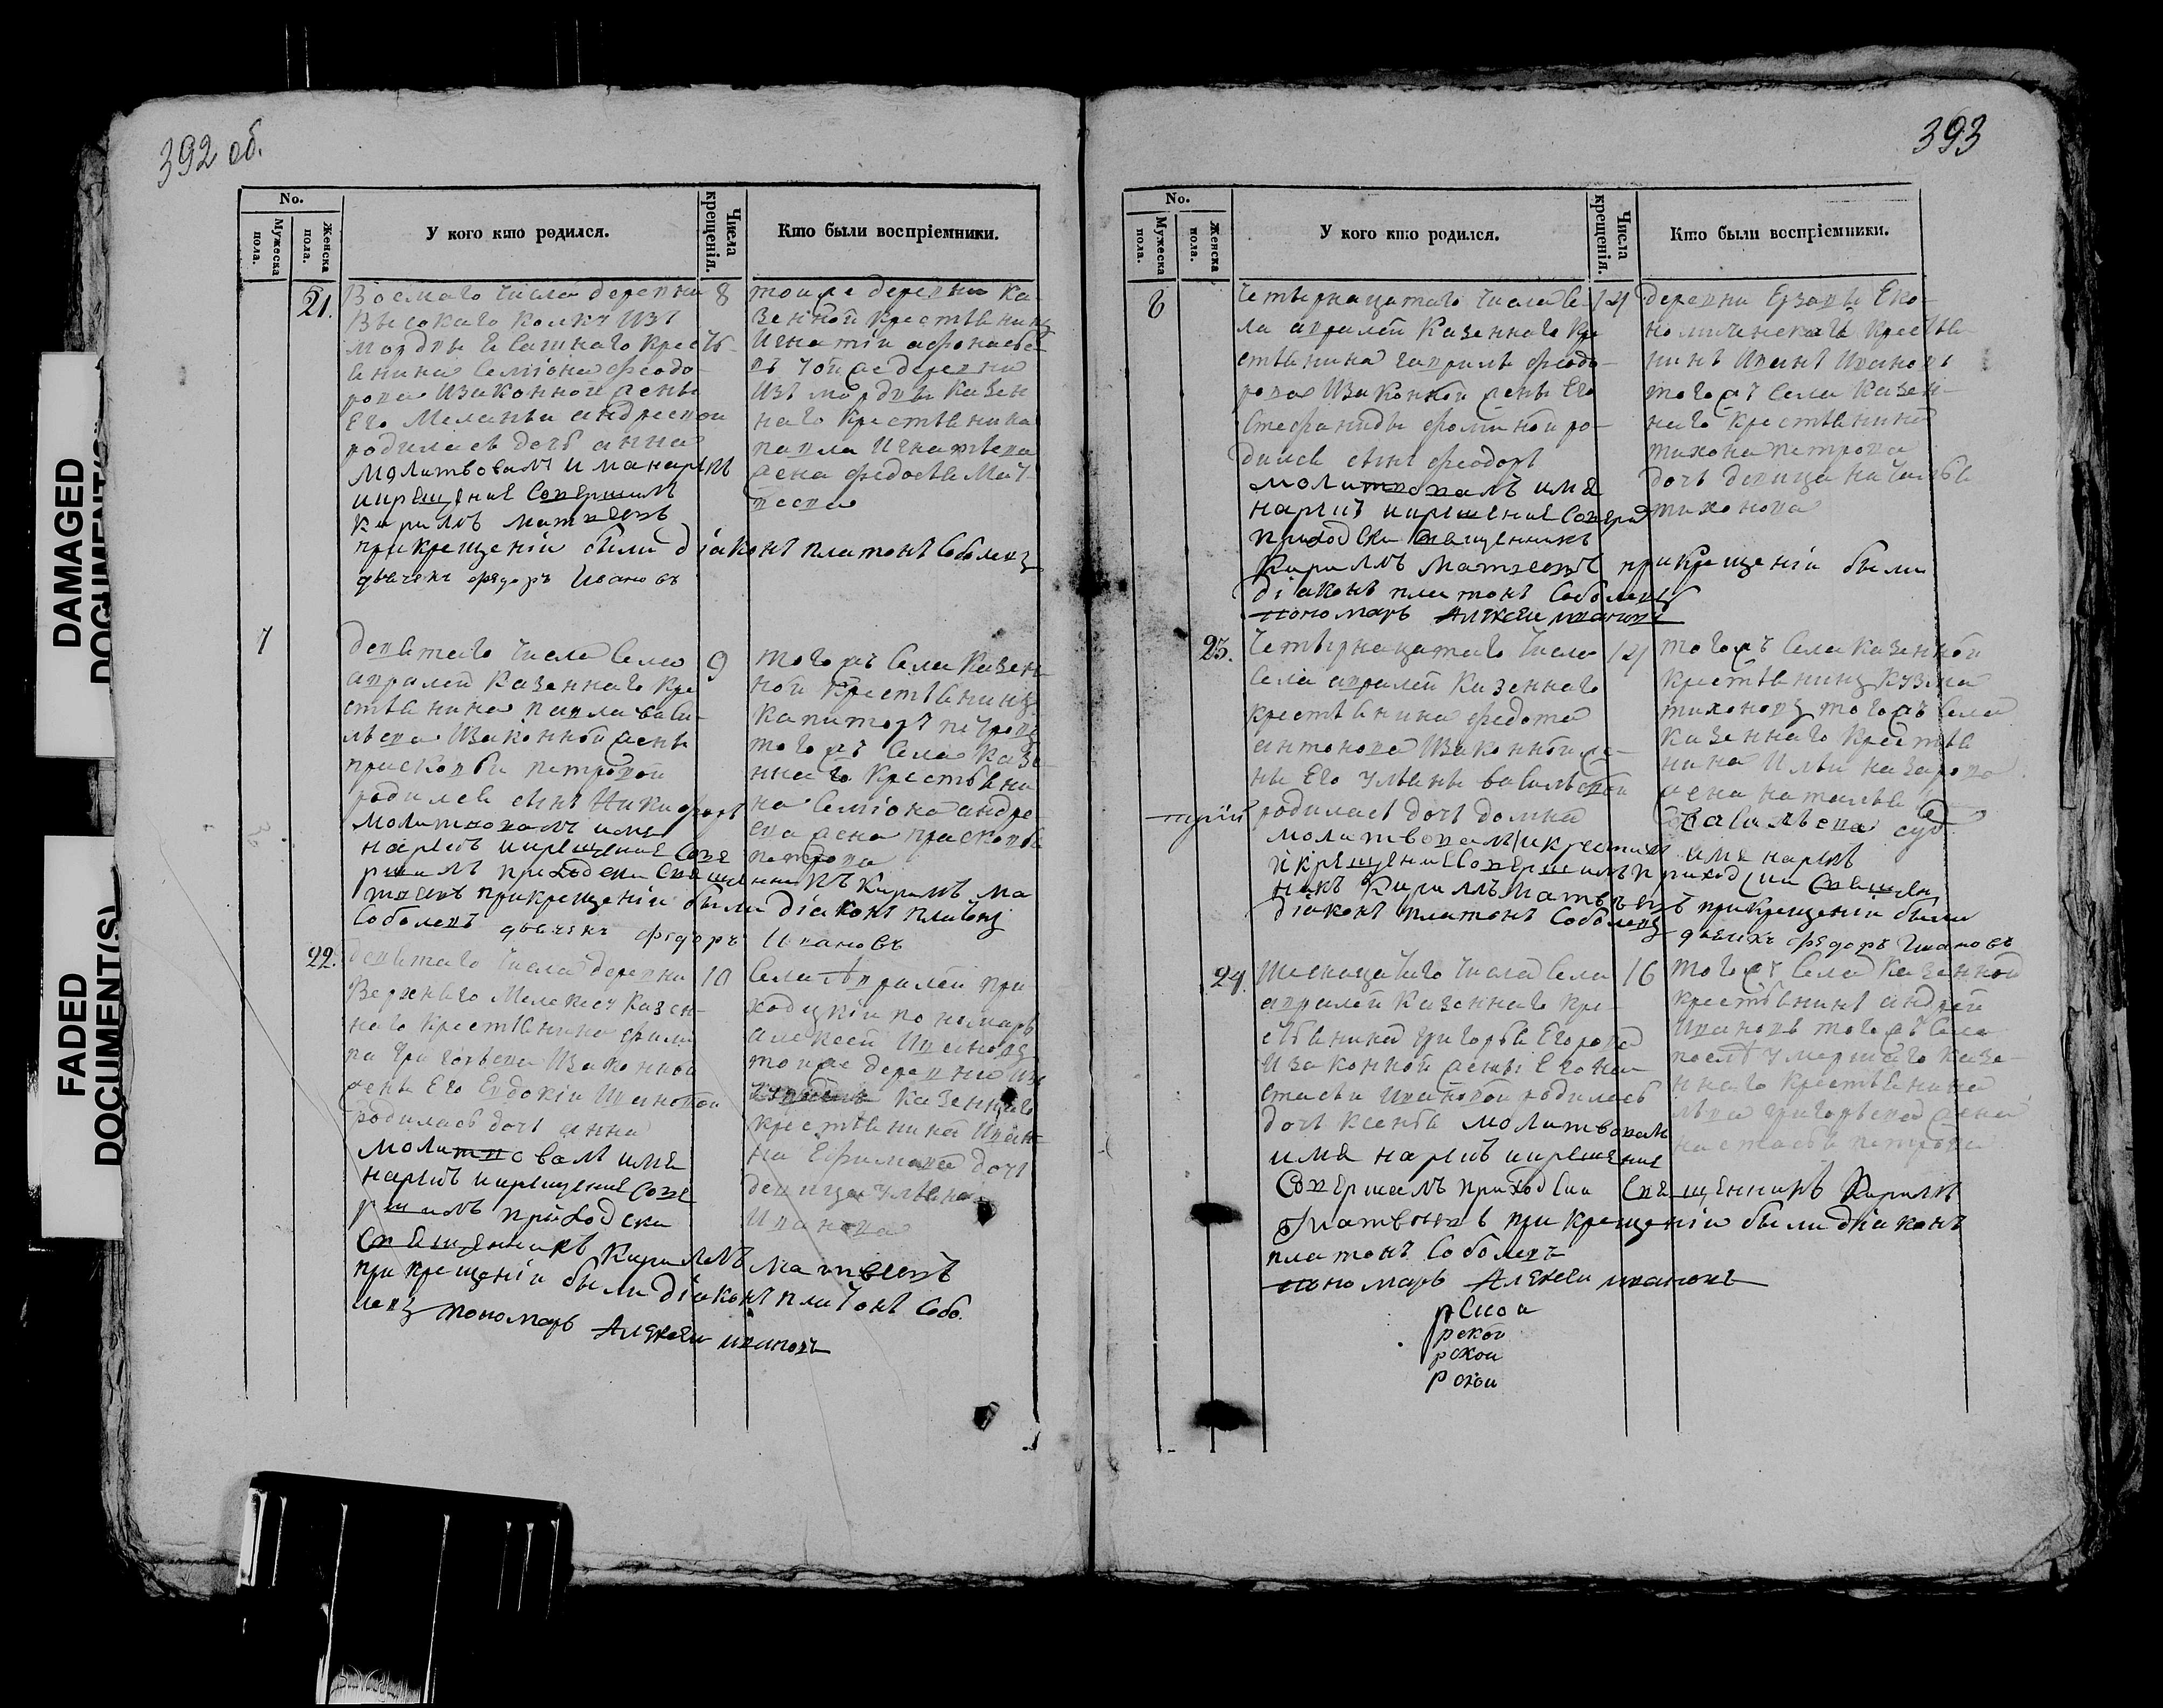 392 об.
No.
Мужеска пола.
Женска пола.
У кого кто родился.
Числа крещенія.
Кто были воспріемники.
21.
Восмаго числа деревни
Высокаго колкъ изъ
мордвы
янина Семіона Феодо-
рова изаконной жены
его Меланьи андреевой
родилась дочь анна
молитвовалъ имя нарекъ
икрещение Совершилъ
Кирилъ матвеевъ
прикрещеніи были діаконъ платонъ Соболевъ
дьячекъ федоръ Ивановъ
8
тойже деревни Ка-
зенной крестьянинъ
Игнатіи афонасье-
въ тойже деревни
изъ мордвы казен
наго крестьянина
павла Игнатьева
жена федосья Мат-
веева
7
девятаго числа Села
авралей казеннаго кре
стьянина павла васи-
льева изаконной жены
прасковьи петровой
родился сынъ Никифоръ
молитвовалъ имя
нарекъ икрещение Сове
ршилъ приходски Священникъ Кирилъ ма
твеевъ прикрещеніи были діаконъ платонъ
Соболевъ дьячекъ федоръ Ивановъ
9
тогожъ Села Казен-
ной крестьянинъ
капитонъ петровъ
тогожъ Села казе-
ннаго крестьяни
на Семіона андре
ева жена прасковья
петрова
22.
девятаго числа деревни
Верхняго Мелекесу казен-
наго крестьянина фили
па григорьева изаконной
жены его Евдокіи Ивановой
родилась дочь анна
молитвовалъ имя
нарекъ икрещение Сове
ршилъ приходски
Священникъ Кирилъ матвеевъ
прикрещеніи были діаконъ платонъ Собо.
левъ пономарь Алексеи ивановъ
10
Села авралей при
ходцкіи пономарь
алексеи Ивановъ
тойже деревни из
казеннаго
крестьянина Иван-
на Ефимова дочь
девица ульяна
Иванова
393
No.
Мужеска пола.
Женска пола.
У кого кто родился.
Числа крещенія.
Кто были воспріемники.
8
четырнацатаго числа Се-
ла авралей казеннаго кре
стьянина гаврилы феодо-
рова изаконной жены его
Стефаниды фоминой ро-
дился сынъ феодоръ
молитвовалъ имя
нарекъ икрещение Соверш
приходски Священникъ
Кирилъ Матвеевъ прикрещеніи были
діаконъ платонъ Соболевъ
пономарь Алексеи ивановъ
14
деревни Ерзовы Еко-
номическаго крестья-
нинъ Иванъ Ивановъ
тогожъ Села казен-
наго крестьянина
тихона петрова
дочь девица наталья
тихонова
23.
четырнацатаго числа
Села авралей казеннаго
крестьянина федота
антонова изаконной же-
ны его ульяны васильевой
родилась дочь домна
молитвовалъ имя нарекъ
икрещение Совершилъ приходски Священ
никъ Кирилъ матвеевъ прикрещеніи были
діаконъ платонъ Соболевъ дьячекъ федоръ Ивановъ
14
тогожъ Села казенной
крестьянинъ кузма
тихоновъ тогожъ Села
казеннаго крестья
нина Ильи назарова
жена наталья
васильева
24.
шеснацатаго числа Села
авралей казеннаго кре-
стьянина григорья Егорова
изаконной жены его на-
стасьи Ивановой родилась
дочь ксенья молитвовалъ
имя нарекъ икрещение
Совершилъ приходски Священникъ Кирилъ
Матвеевъ прикрещеніи были діаконъ
платонъ Соболевъ
пономарь Алексеи ивановъ
16
тогожъ Села казенной
крестьянинъ андрей
Ивановъ тогожъ Села
послѣ умершаго казе-
ннаго крестьянина
льва григорьева жена
настасья петрова
рской
рской
рской
рской
DAMAGED
DOCUMENT(S)
FADED
DOCUMENT(S)